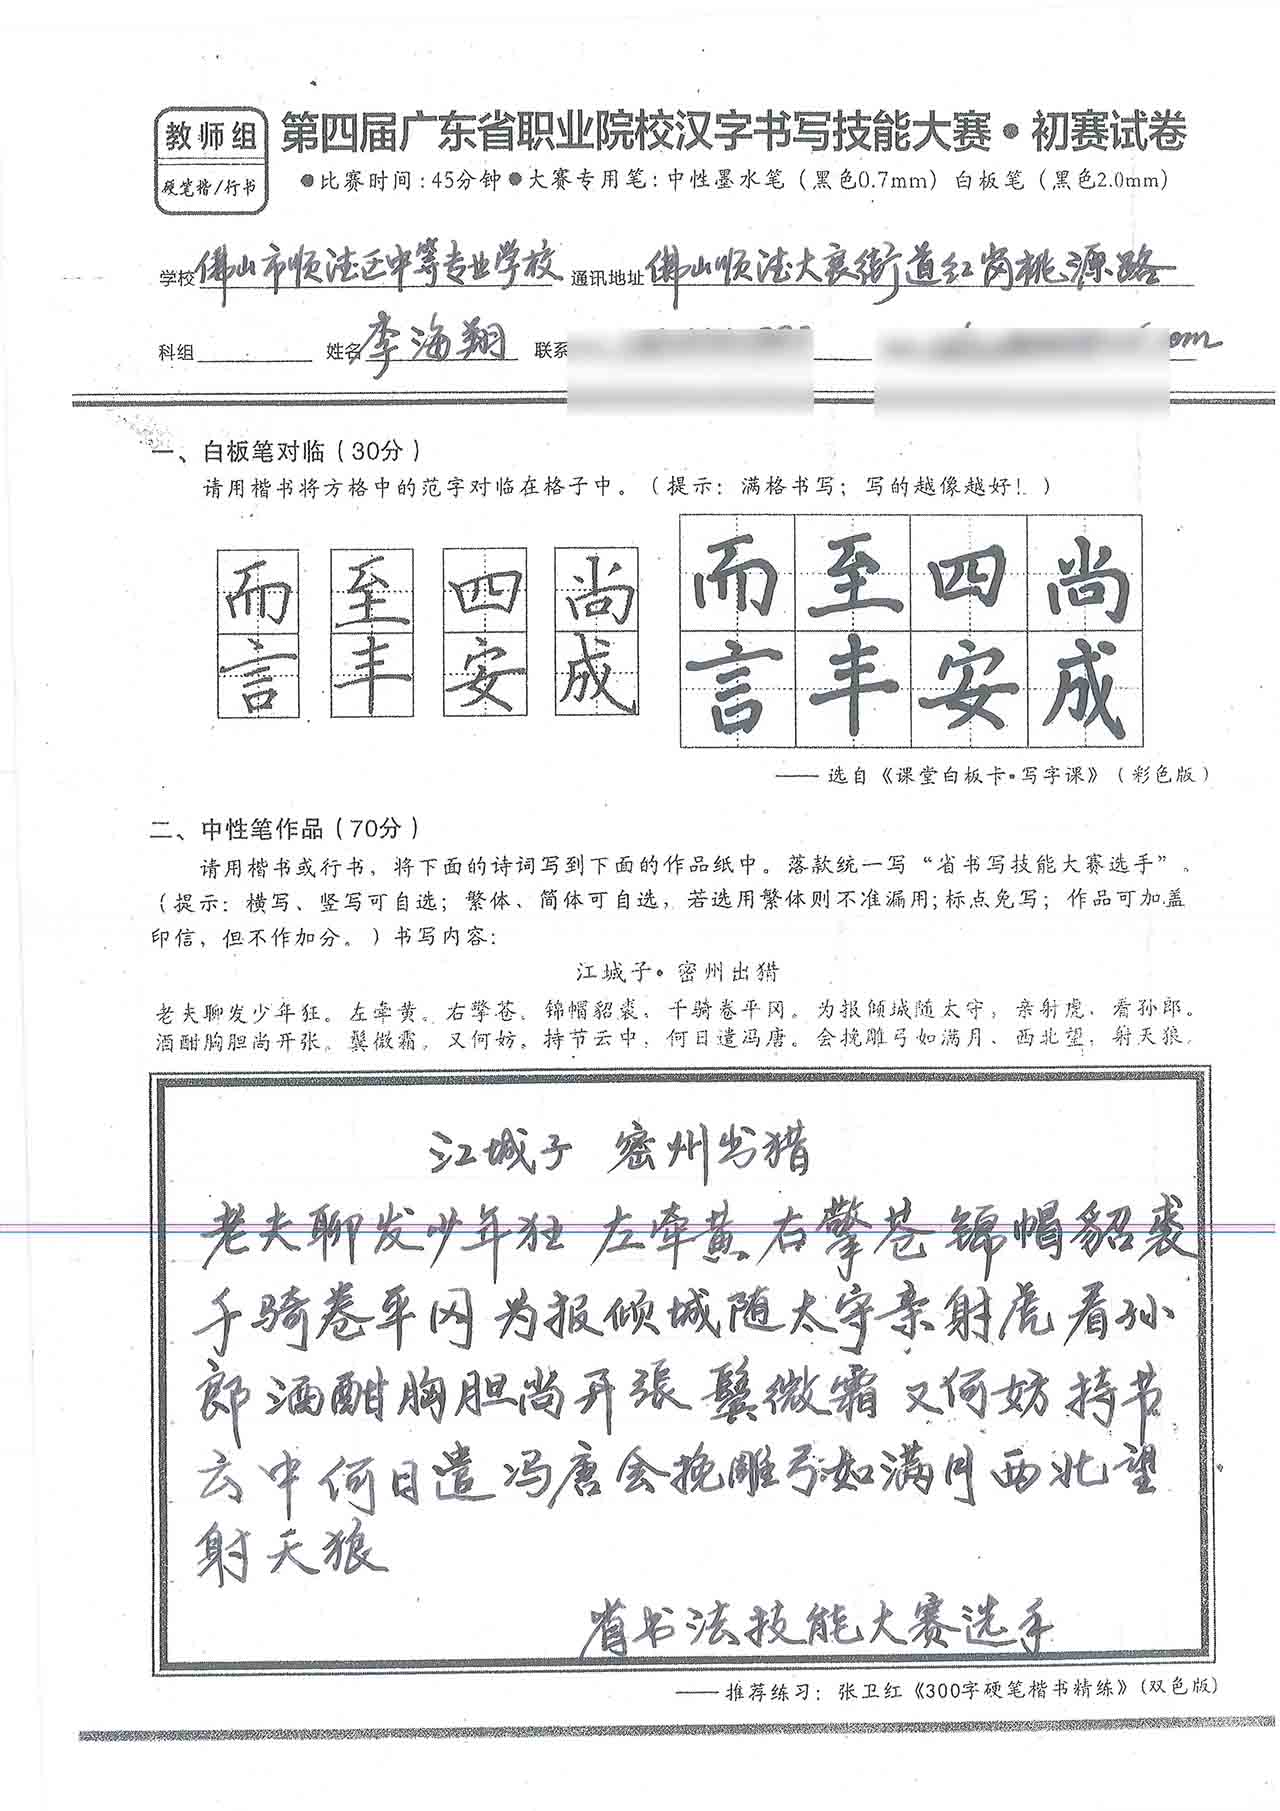 教师组
硬笔楷/行书
第四届广东省职业院校汉字书写技能大赛•初赛试卷
●比赛时间:45分钟●大赛专用笔:中性墨水笔(黑色0.7mm)白板笔(黑色2.0mm)
学校 佛山市顺德 中等专业学校 通讯地址 佛山顺德大良街道红岗桃源路
科组 姓名 李海翔 联系 om
一、白板笔对临(30分)
请用楷书将方格中的范字对临在格子中。(提示:满格书写;写的越像越好!)
而 至 四 尚 而 至 四 尚
言 丰 安 成 言 丰 安 成
——选自《课堂白板卡•写字课》(彩色版)
二、中性笔作品(70分)
请用楷书或行书,将下面的诗词写到下面的作品纸中。落款统一写“省书写技能大赛选手”。
(提示:横写、竖写可自选;繁体、简体可自选,若选用繁体则不准漏用;标点免写;作品可加盖
印信,但不作加分。)书写内容:
江城子•密州出猎
老夫聊发少年狂。左牵黄。右擎苍、锦帽貂裘,千骑卷平冈。为报倾城随太守,亲射虎,看孙郎。
酒酣胸胆尚开张。鬓微霜。又何妨。持节云中,何日遣冯唐。会挽雕弓如满月、西北望,射天狼。
江城子 密州出猎
老夫聊发少年狂 左牵黄 右擎苍 锦帽貂裘
千骑卷平冈 为报倾城随太守亲射虎 看孙
郎 酒酣胸胆尚开張 鬓微霜 又何妨 持节
云中何日遣冯唐会挽雕弓如满月西北望
射天狼
省书法技能大赛选手
——推荐练习:张卫红《300字硬笔楷书精练》(双色版)